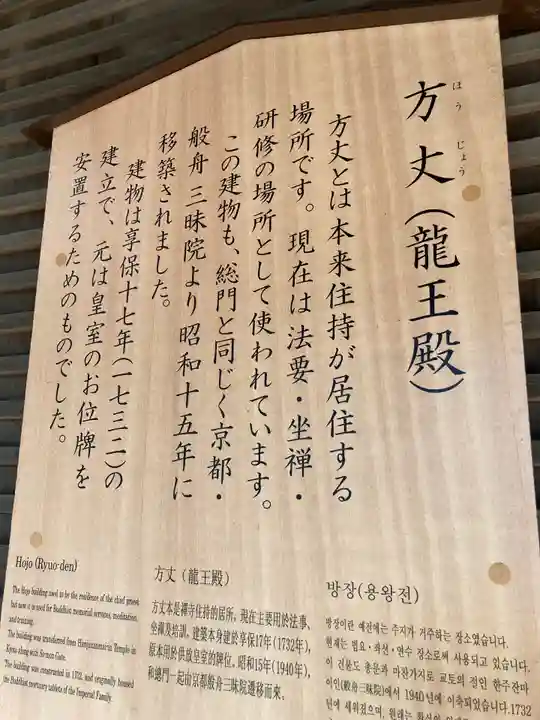 ほうじょう
方丈(龍王殿)
方丈とは本来住持が居住する
場所です。現在は法要・坐禅・
研修の場所として使われています。
この建物も、総門と同じく京都・
般舟三昧院より昭和十五年に
移築されました。
建物は享保十七年(一七三二)の
建立で、元は皇室のお位牌を
安置するためのものでした。
Hojo (Ryuo-den)
The Hojo building used to be the residence of the chief priest
but now is used for Buddhist memorial services, meditation,
and training.
The building was transferred from Hanjuzanmai-in Temple in
Kyoto along with So-mon Gate.
The building was constructed in 1732, and originally housed
the Buddhist mortuary tablets of the Imperial Family.
方丈（龍王殿）
方丈本是禪寺住持的居所，現在主要用於法事、
坐禪及培訓。建築本身建於享保17年(1732年)，
原本用於供放皇室的牌位。昭和15年(1940年)，
和總門一起由京都般舟三昧院遷移而來。
방장(용왕전)
방장이란 예전에는 주지가 거주하는 장소였습니다.
현재는 법요・좌선・연수 장소로써 사용되고 있습니다.
이 건물도 총문과 마찬가지로 교토의 절인 한주잔마
이인(般舟三昧院)에서 1940년에 이축되었습니다. 1732
년에 세워졌으며, 원래는 황실의